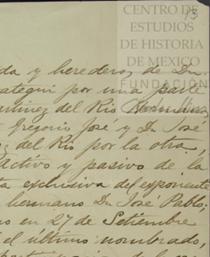 CENTRO DE
ESTUDIOS
DE HISTORIA
DE MEXICO
FUNDACIÓN
da y herederos de Dn.
ategui por una parte
artinez del Rio Hermanos
Gregorio José y Dn José
del Rio por la otra,
activo y pasivo de la
a exclusiva del exponente
hermano Dn. José Pablo;
en 27 de Setiembre
el último nombrado,